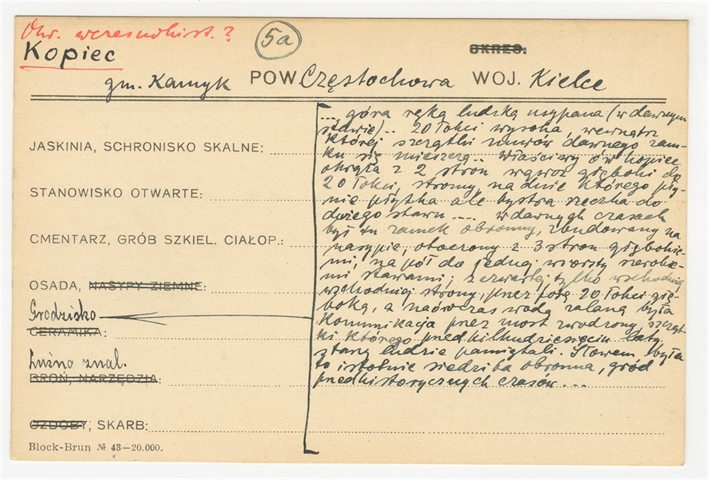 Okr. wczesnohist.?
Kopiec
5a
OKRES:
gm. Kamyk POW. Częstochowa WOJ. Kielce
JASKINIA, SCHRONISKO SKALNE:
STANOWISKO OTWARTE:
CMENTARZ, GRÓB SZKIEL. CIAŁOP.:
OSADA, NASYPY ZIEMNE:
Grodzisko
CERAMIKA:
Luźno znal.
BROŃ, NARZĘDZIA:
OZDOBY, SKARB:
Block-Brun № 43—20.000.
... góra ręką ludzką usypana (w dawnym
.. 20 łokci wysoka, wewnątrz
której szczątki murów dawnego zam-
ku się mieszczą.. właściwy ów kopiec
okrąża z 2 stron wąwóz głęboki do
20 łokci, stromy, na dnie którego pły-
nie płytka ale bystra rzeczka do
stawu .... w dawnych czasach
był tu zamek obronny, zbudowany na
nasypie, otoczony z 3 stron głęboki-
mi, na pół do jednej wiorsty szeroki-
mi stawami; z czwartej tylko wschodniej
wschodniej strony, przez fosę 20 łokci głę-
boką, a naówczas wodą zalaną była
komunikacja przez most zwodzony, szcząt-
ki którego przed kilkudziesięciu laty
starzy ludzie pamiętali. Słowem, była
to istotnie siedziba obronna, gród
przedhistorycznych czasów ...